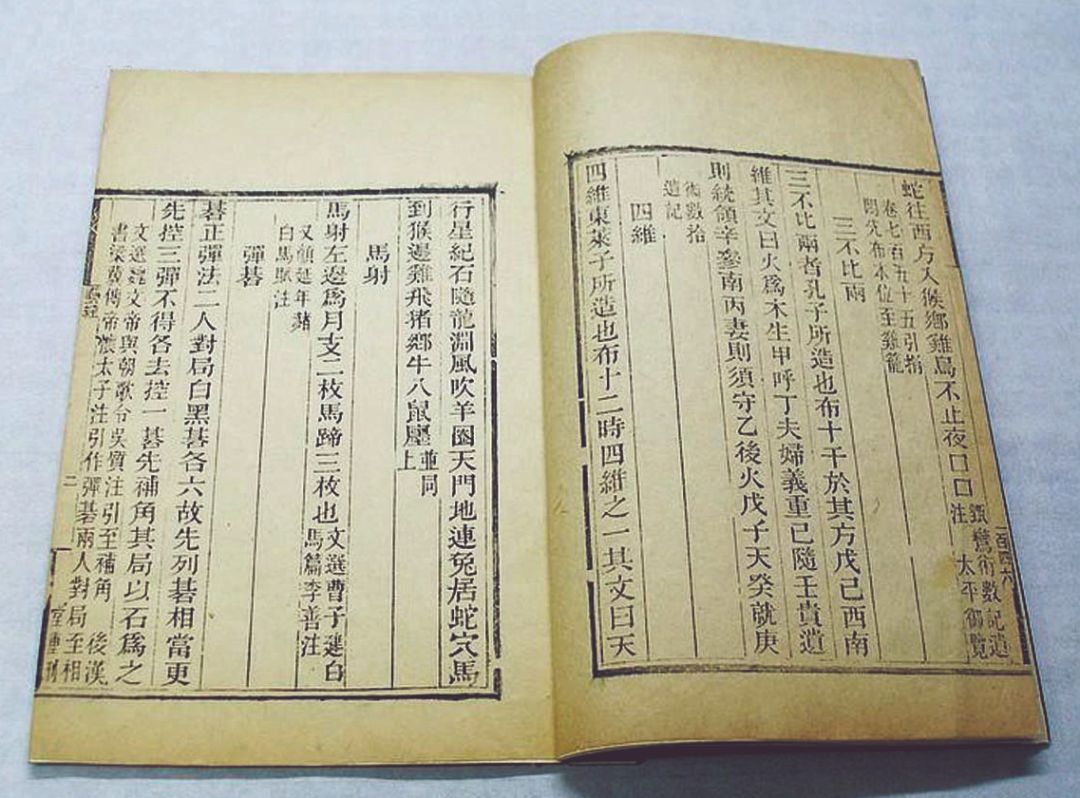 蛇往西方入猴鄉雞鳥不止夜口口
甄鸞術數記遺
注 太平御覽
卷七百五十五引指
問先布本位至雞籠
三不比兩
三不比兩者孔子所造也布十干於其方戊己西南
維其文曰火爲木生甲呼丁夫婦義重己隨壬貴遺
則統領辛參南丙妻則須守乙後火戊子天癸就庚
術數拾
遺記
四維
四維東萊子所造也布十二時四維之一其文曰天
行星紀石隨龍淵風吹羊圈天門地連兔居蛇穴馬
到猴邊雞飛猪鄉牛八鼠廛
並同
上
馬射
馬射左邊爲月支二枚馬蹄三枚也
文選曹子建白
馬篇李善注
又顏延年赭
白馬賦注
彈碁
碁正彈法二人對局白黑碁各六故先列碁相當更
先控三彈不得各去控一碁先補角其局以石爲之
文選魏文帝與朝歌令吳質注引至補角 後漢
書梁冀傳帝懷太子注引作彈碁兩人對局至相
二